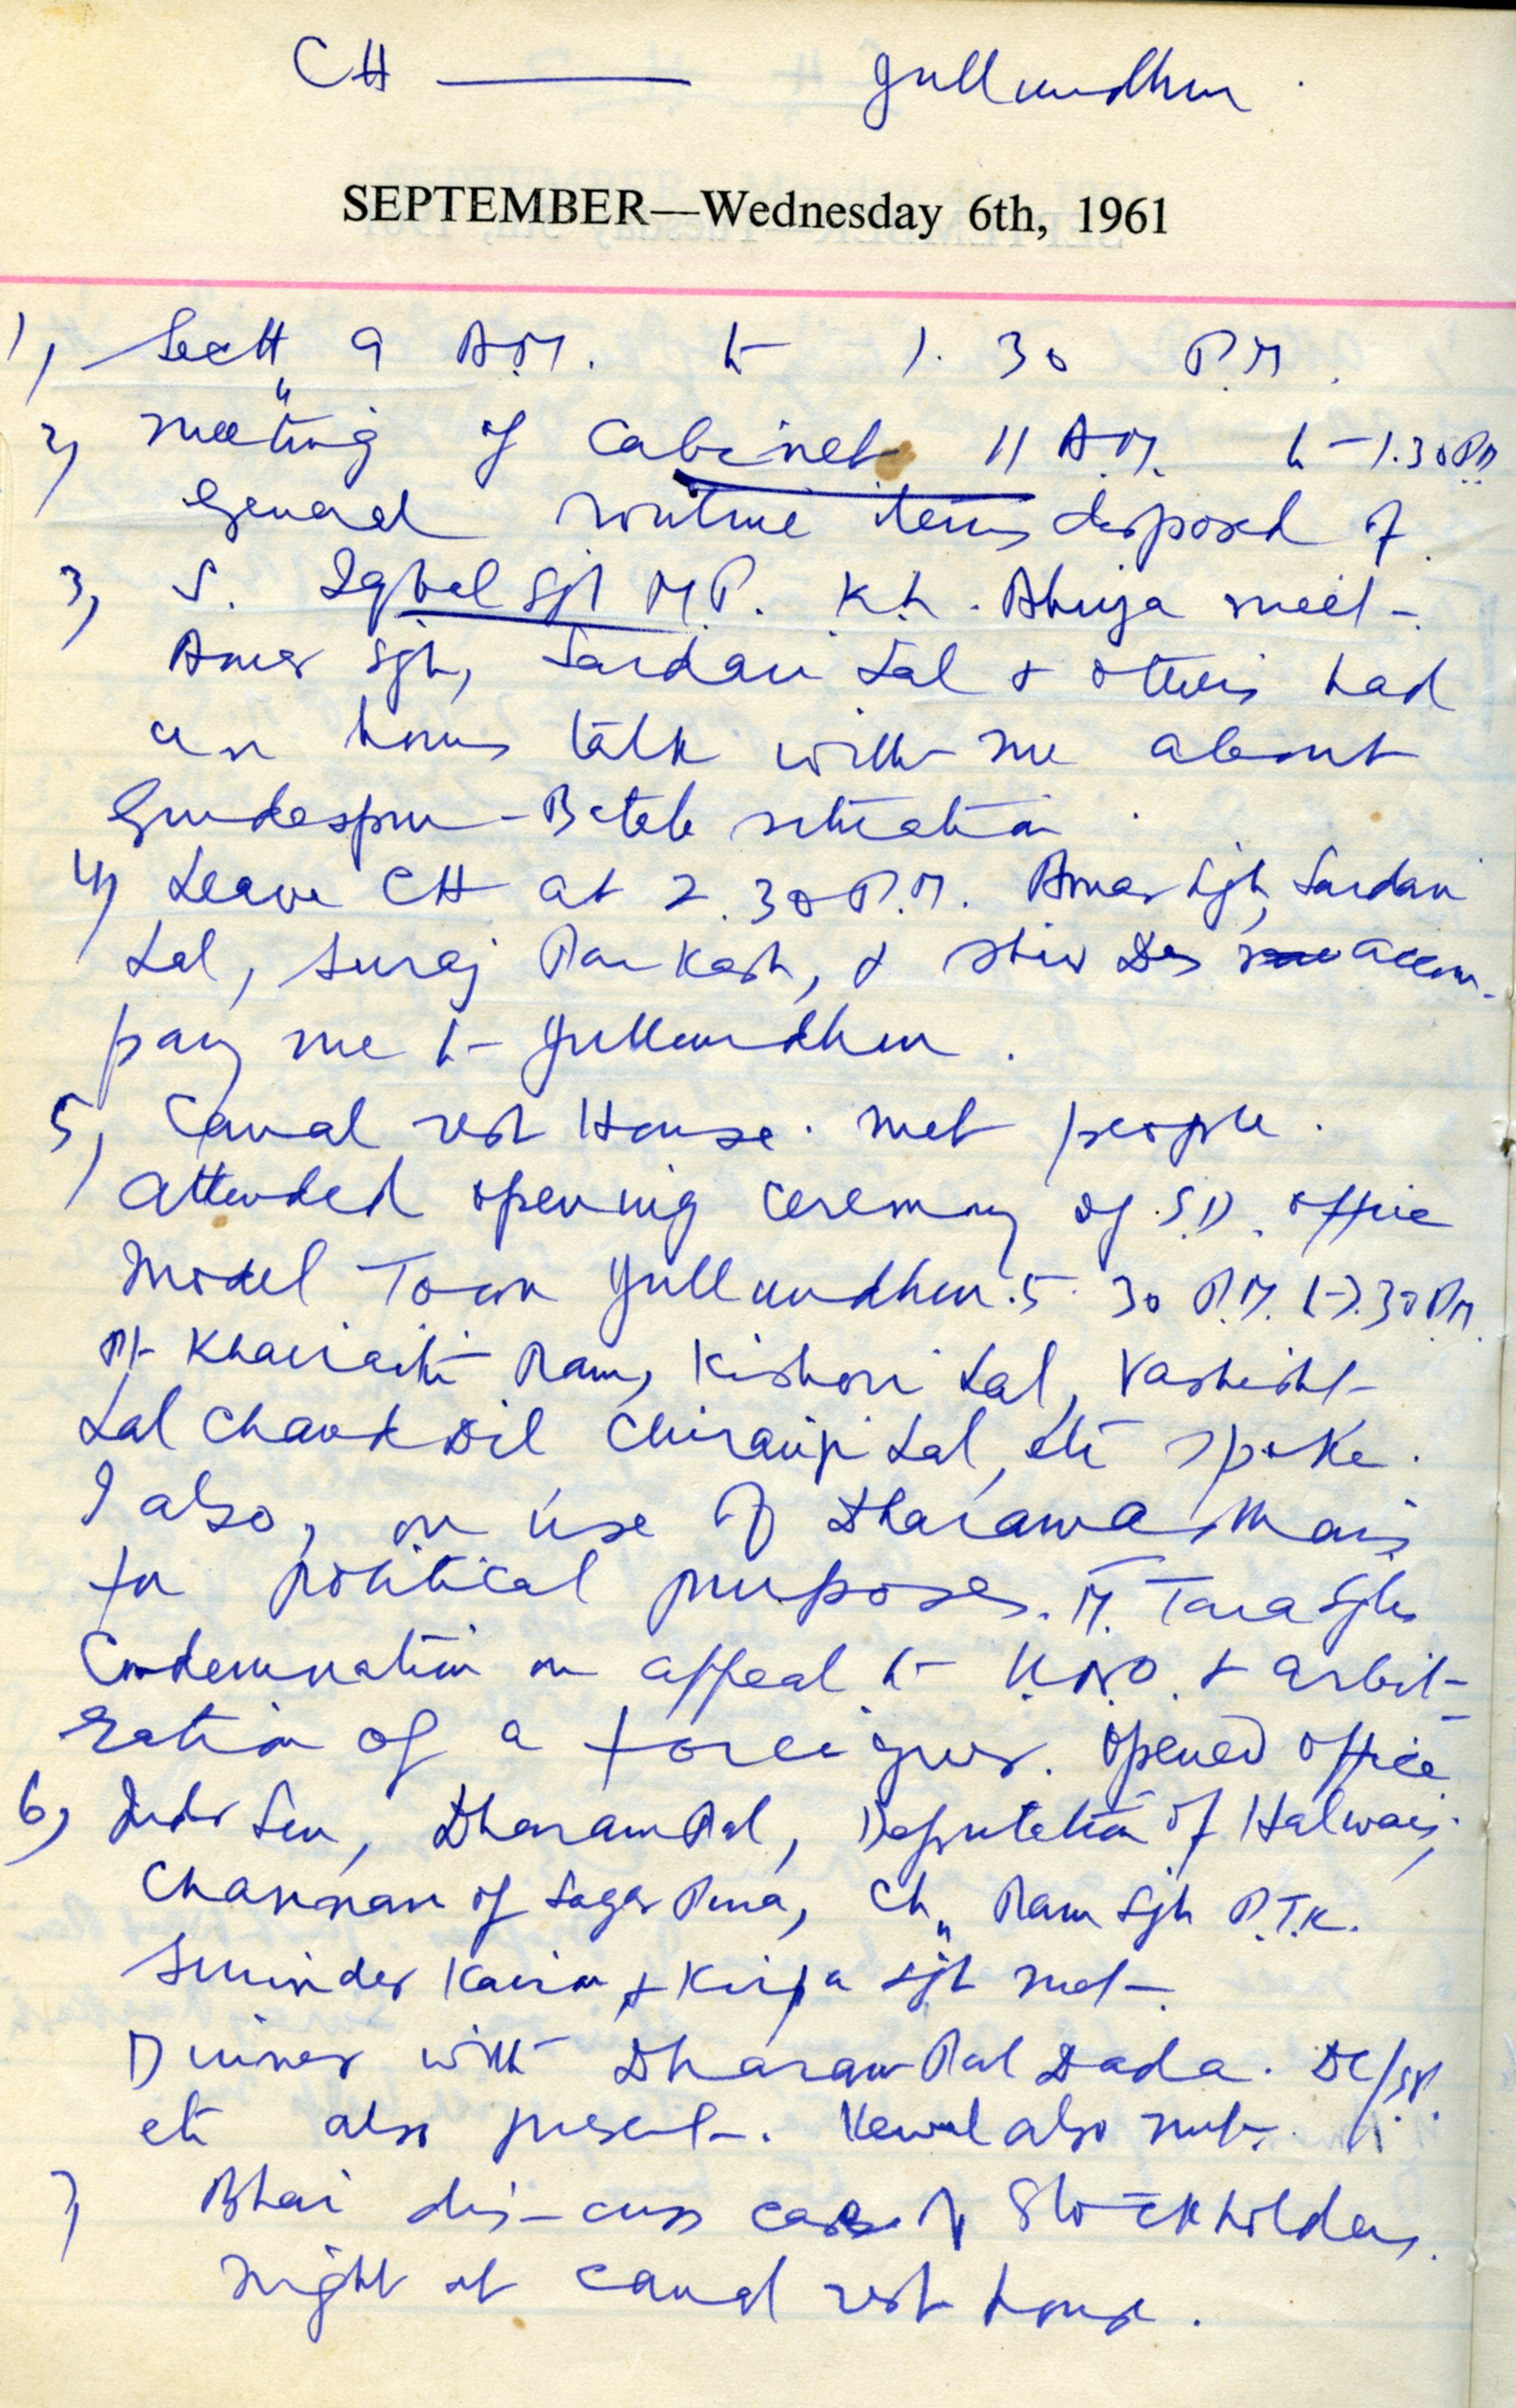 CH — Jullundhur.
SEPTEMBER—Wednesday 6th, 1961
1, Sectt" 9 A.M. to 1.30 P.M.
2, Meeting of Cabinet 11 A.M. to 1.30 P.M
General routine items disposed of.
3, S. Iqbal Sgh M.P. K.L. Ahuja meet.
Amar Sgh, Sardari Lal & others had
an hours talk with me about
Gurdaspur - Batala situation.
4, Leave CH at 2.30 P.M. Amar Sgh, Sardari
Lal, Suraj Parkash, & Shiv Das accom-
pany me to Jullundhur.
5, Canal rest House. Met people.
Attended opening ceremony of S.D. office
Model Town Jullundhur. 5.30 P.M. to 7.30 P.M.
Pt Khairaiti Ram, Kishori Lal, Vashisht
Lal Chand Dil Chiranji Lal, etc spoke.
I also, on use of Dharamasthans
for political purposes. M. Tara Sgh's
Condemnation on appeal to U.N.O. & arbit-
ration of a foreigner. Opened office
6, Inder Sen, Dharam Pal, Deputation of Halwais,
Chairman of Sugar Pura, Ch" Ram Sgh P.T.K.
Surinder Kairon & Kirpa Sgh met.
Dinner with Dharam Pal Dada. DC/S.P.
etc also present. Kewal also met.
7, Bhai dis-cuss case of Stockholders.
Night at canal rest house.